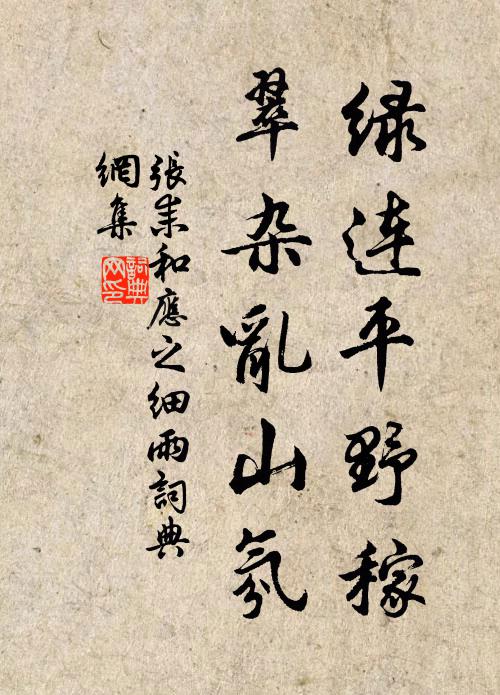 绿连平野稼
翠杂乱山氛
張耒和應之细雨詞典
網集
詞典网印